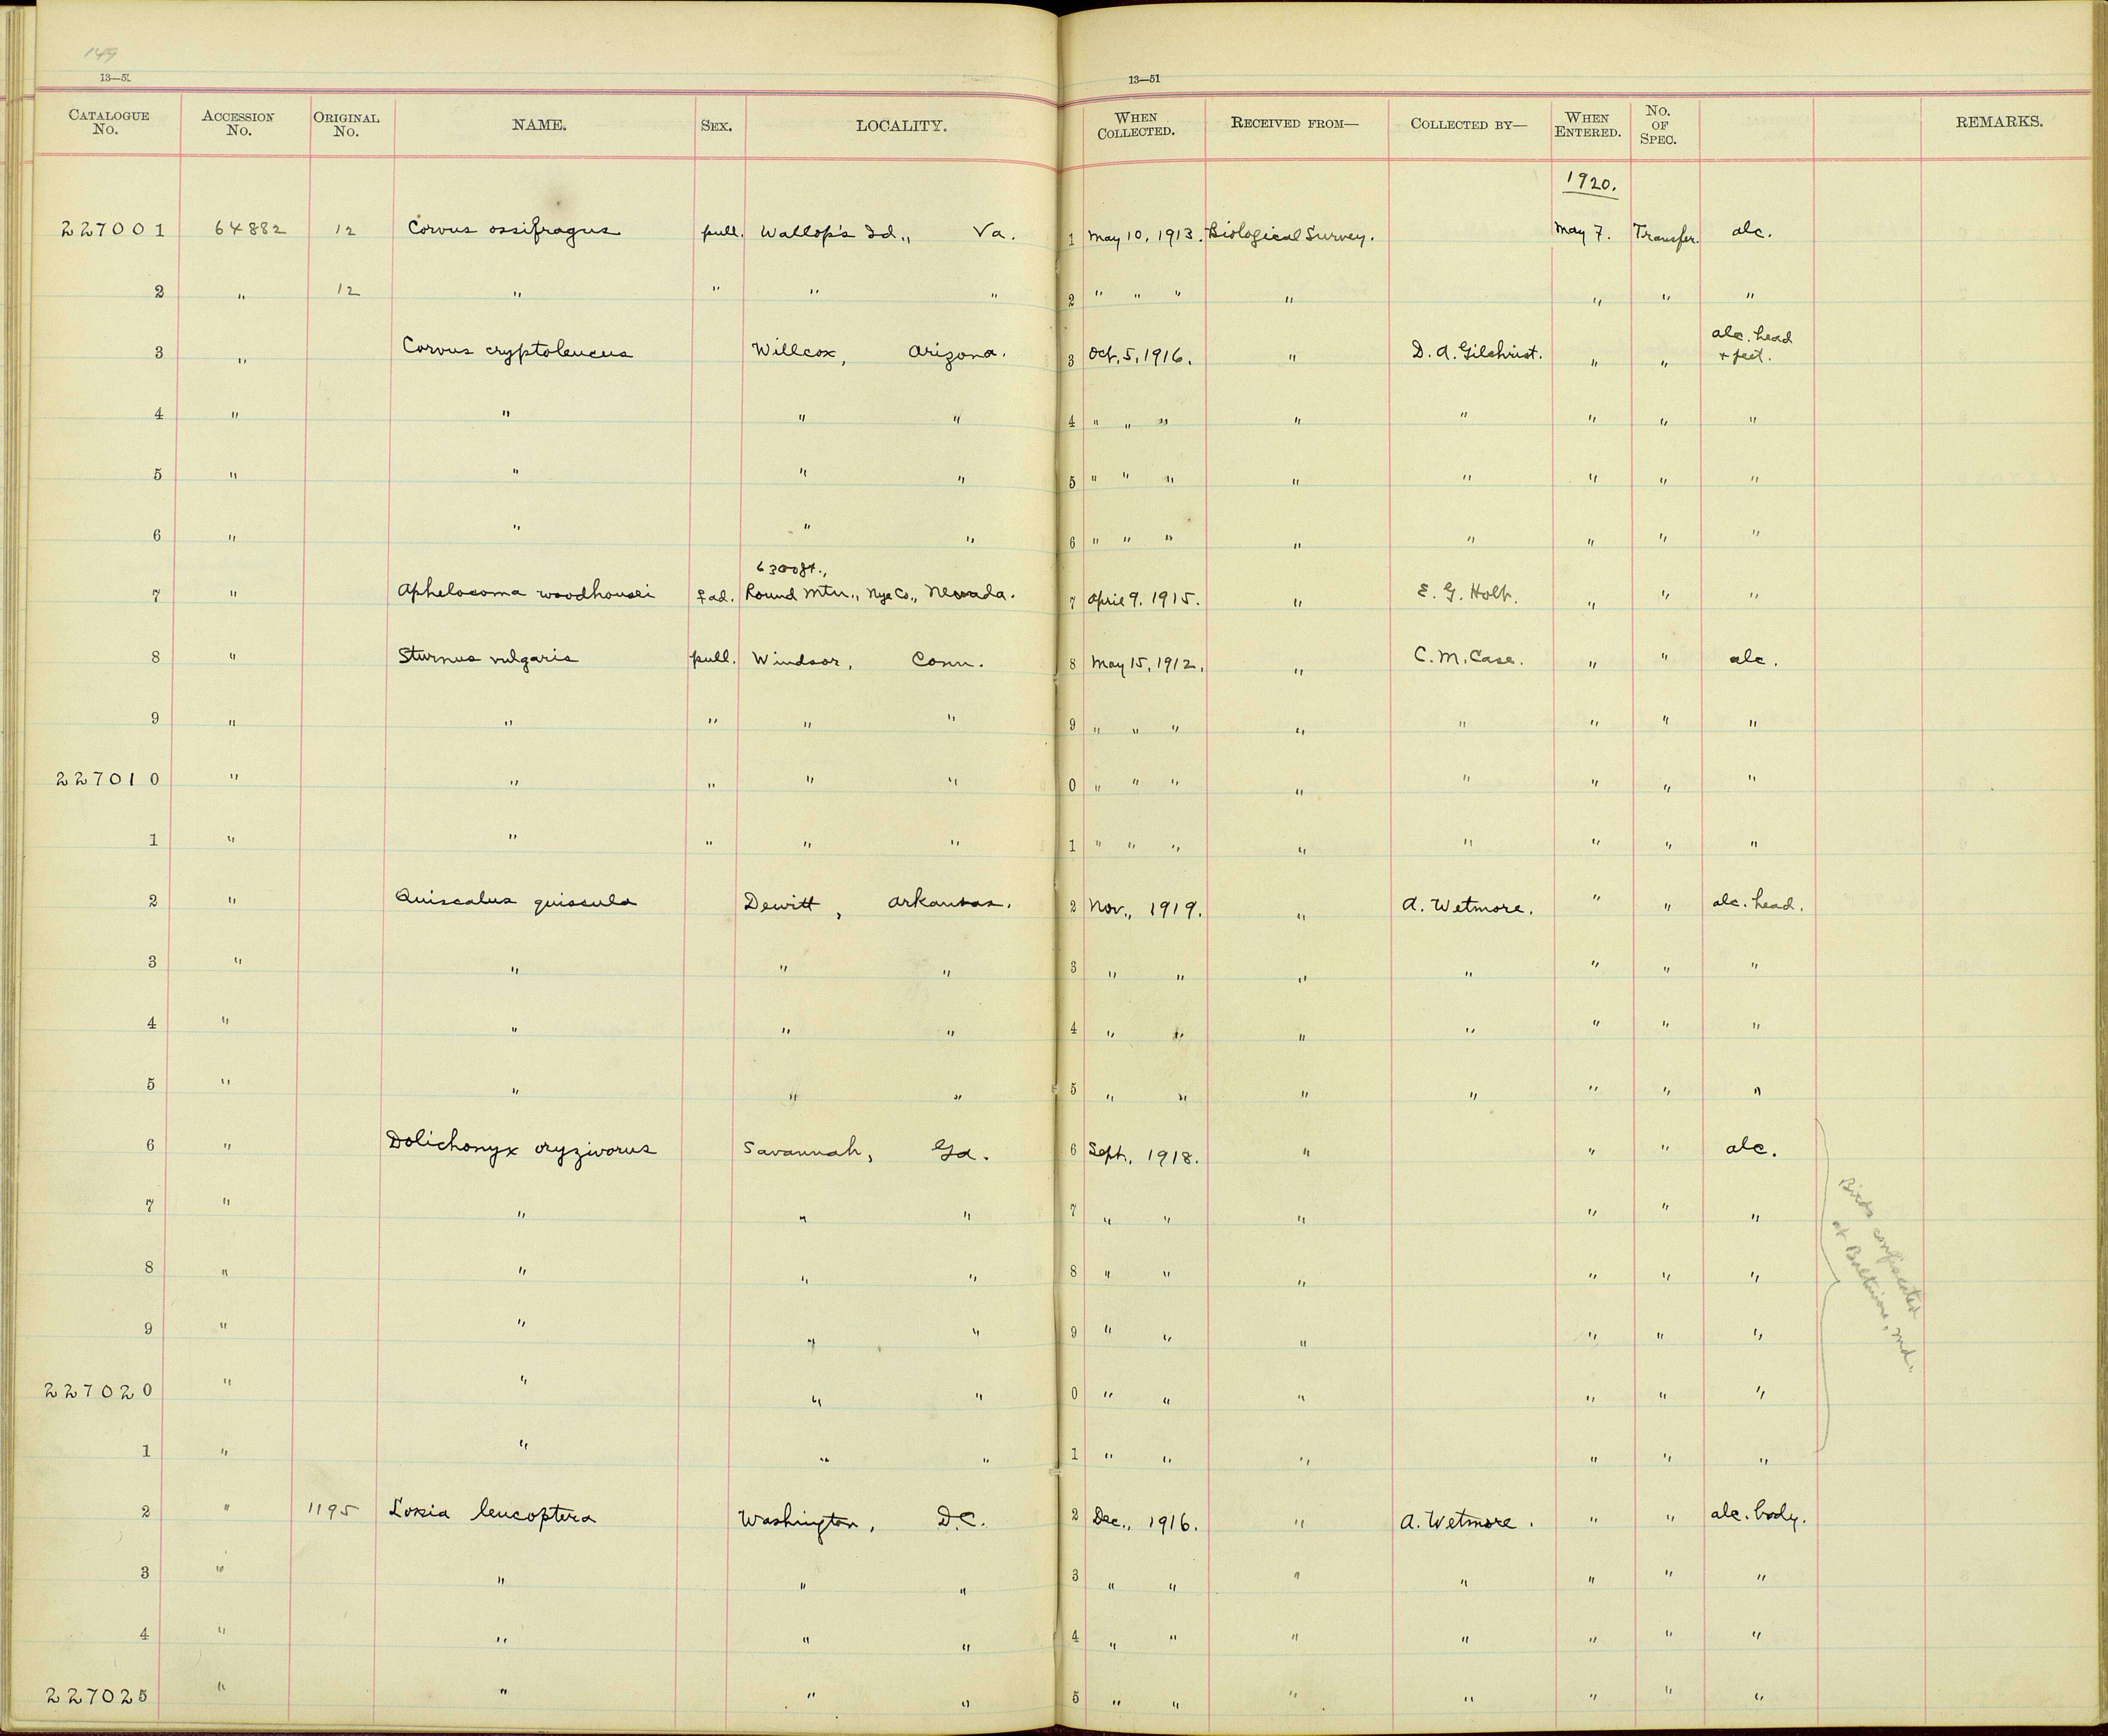 149
13—51 13—51
CATALOGUE No. ACCESSION No. ORIGINAL No. NAME. SEX. LOCALITY. WHEN COLLECTED. RECEIVED FROM— COLLECTED BY— WHEN ENTERED. No. OF SPEC. REMARKS.
1920.
227001 64882 12 Corvus ossifragus pull. Wallop's Id., Va. 1 May 10, 1913. Biological Survey. May 7. Transfer. alc.
2 " 12 " " " " 2 " " " " " " "
3 " Corvus cryptoleucus Willcox, Arizona. 3 Oct. 5, 1916. " D. A. Gilchrist. " " alc. head + feet.
4 " " " " 4 " " " " " " " "
5 " " " " 5 " " " " " " " "
6 " " " " 6 " " " " " " " "
6300 ft.,
7 " Aphelocoma woodhousei ♀ ad. Round Mtn., Nye Co., Nevada. 7 April 9, 1915. " E. G. Holt. " " "
8 " Sturnus vulgaris pull. Windsor, Conn. 8 May 15, 1912. " C. M. Case. " " alc.
9 " " " " " 9 " " " " " " " "
227010 " " " " " 0 " " " " " " " "
1 " " " " " 1 " " " " " " " "
2 " Quiscalus quiscula Dewitt, Arkansas. 2 Nov., 1919. " A. Wetmore. " " alc. head.
3 " " " " 3 " " " " " " "
4 " " " " 4 " " " " " " "
5 " " " " 5 " " " " " " "
6 " Dolichonyx oryzivorus Savannah, Ga. 6 Sept., 1918. " " " alc.
7 " " " " 7 " " " " " "
8 " " " " 8 " " " " " "
9 " " " " 9 " " " " " "
227020 " " " " 0 " " " " " "
1 " " " " 1 " " " " " "
Birds confiscated
at Baltimore, Md.
2 " 1195 Loxia leucoptera Washington, D.C. 2 Dec., 1916. " A. Wetmore. " " alc. body.
3 " " " " 3 " " " " " " "
4 " " " " 4 " " " " " " "
227025 " " " " 5 " " " " " " "